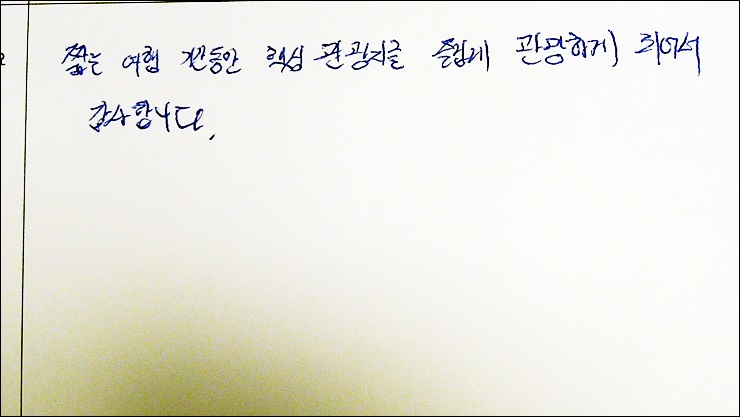 짧은 여행 기간동안 핵심 관광지를 즐겁게 관광하게 되어서
감사합니다.